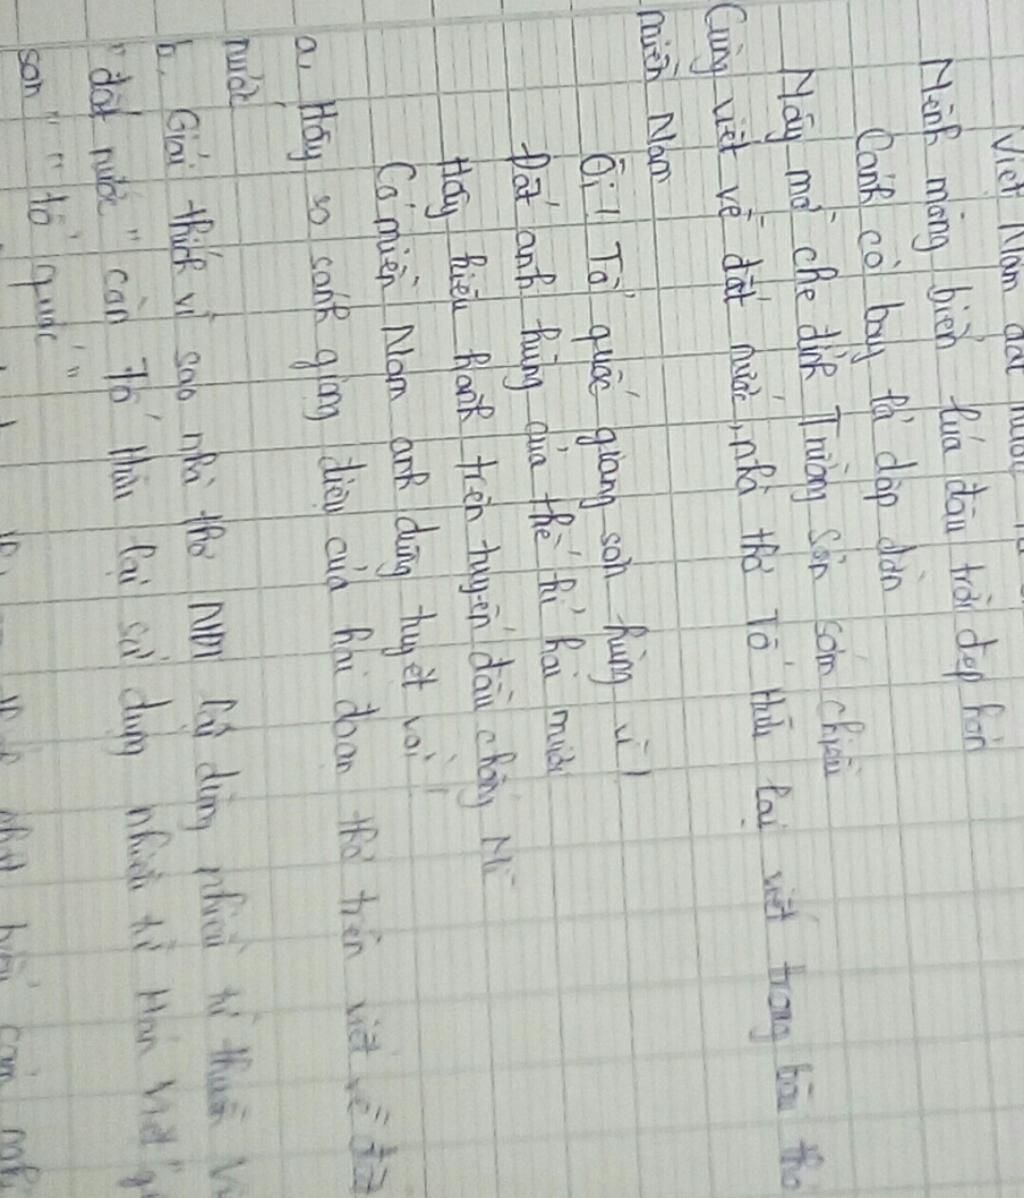 Việt Nam đất nước
Mênh mông biển lúa đâu trời đẹp hơn
Cánh cò bay lả dập dờn
Mây mờ che đỉnh Trường Sơn sớm chiều
Cùng viết về đất nước, nhà thơ Tố Hữu lại viết trong bài thơ
Miền Nam
Ôi! Tổ quốc giang sơn hùng vĩ!
Đất anh hùng của thế kỉ hai mươi
Hãy kiêu hãnh trên tuyến đầu chống Mĩ
Có miền Nam anh dũng tuyệt vời!
a, Hãy so sánh giọng điệu của hai đoạn thơ trên viết về đất
nước
b, Giải thích vì sao nhà thơ NĐT lại dùng nhiều từ thuần
"đất nước" còn Tố Hữu lại sử dụng nhiều từ Hán Việt
sơn" "tổ quốc"